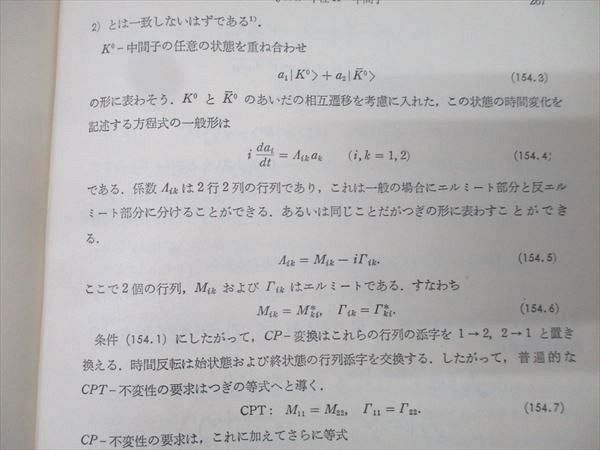 2) とは一致しないはずである¹⁾.
K⁰-中間子の任意の状態を重ね合わせ
a₁|K⁰> + a₂|K̄⁰> (154.3)
の形に表わそう. K⁰ と K̄⁰ のあいだの相互遷移を考慮に入れた, この状態の時間変化を
記述する方程式の一般形は
i daᵢ/dt = Λᵢₖaₖ (i, k = 1, 2) (154.4)
である. 係数 Λᵢₖ は2行2列の行列であり, これは一般の場合にエルミート部分と反エル
ミート部分に分けることができる. あるいは同じことだがつぎの形に表わすことができ
る.
Λᵢₖ = Mᵢₖ − iΓᵢₖ. (154.5)
ここで2個の行列, Mᵢₖ および Γᵢₖ はエルミートである. すなわち
Mᵢₖ = Mₖᵢ*, Γᵢₖ = Γₖᵢ*. (154.6)
条件 (154.1) にしたがって, CP-変換はこれらの行列の添字を 1→2, 2→1 と置き
換える. 時間反転は始状態および終状態の行列添字を交換する. したがって, 普遍的な
CPT-不変性の要求はつぎの等式へと導く.
CPT: M₁₁ = M₂₂, Γ₁₁ = Γ₂₂. (154.7)
CP-不変性の要求は, これに加えてさらに等式